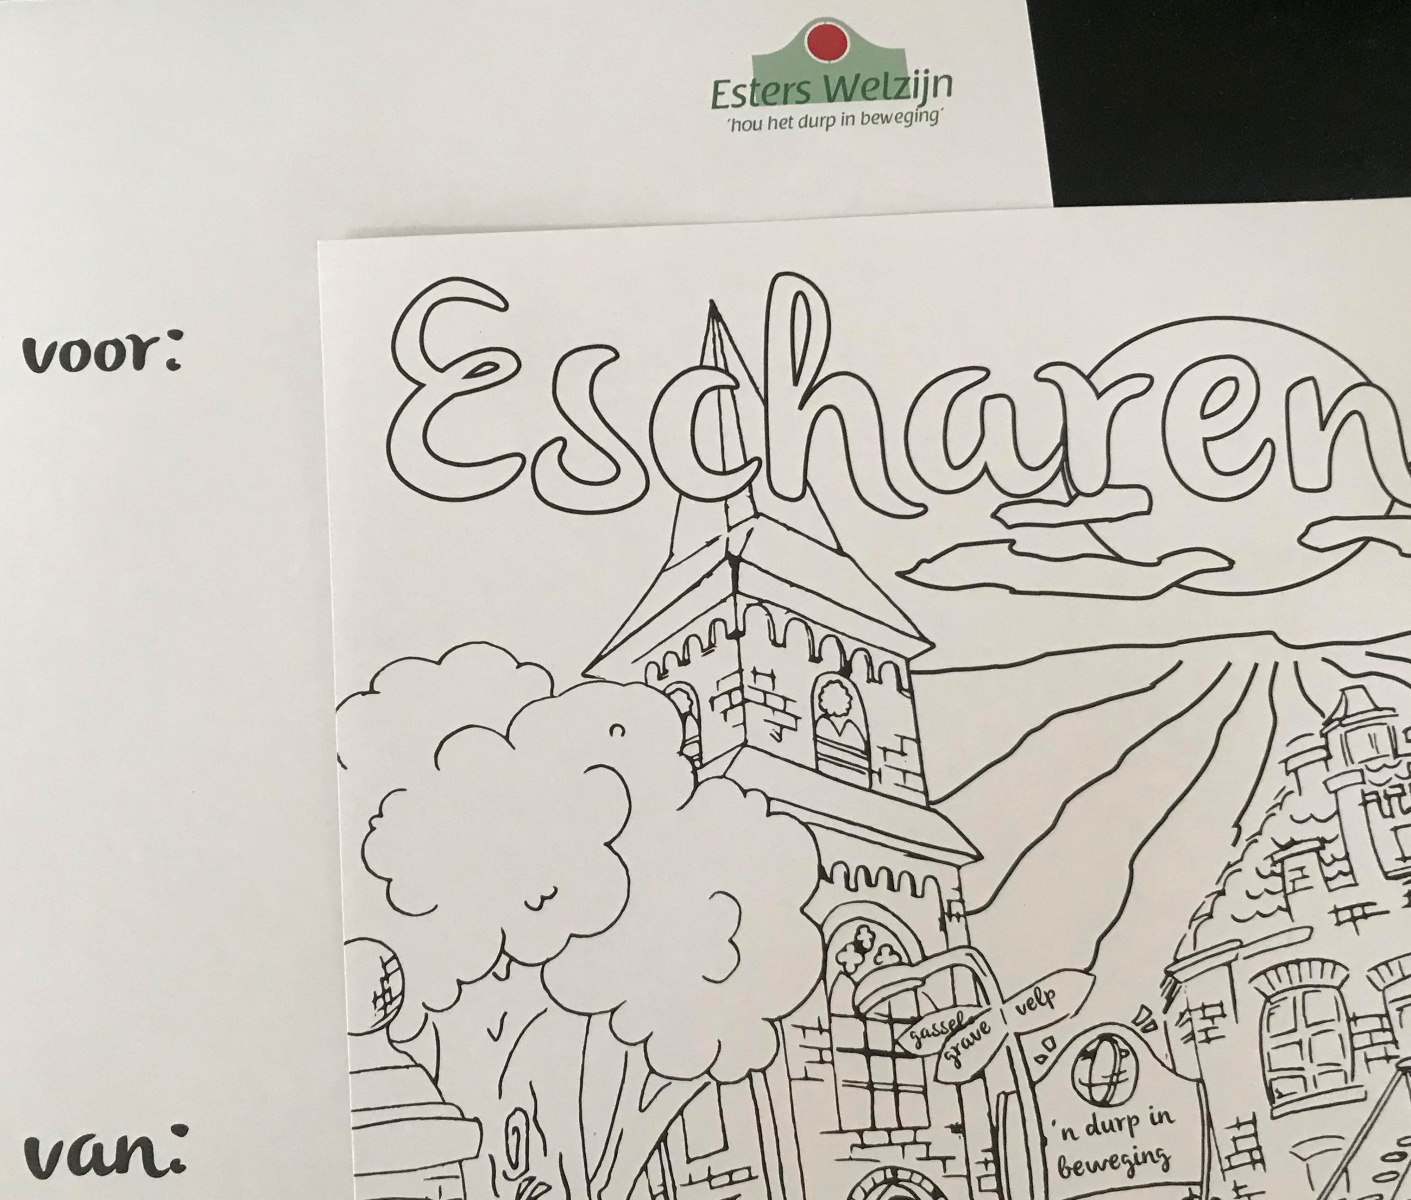 Esters Welzijn
'hou het durp in beweging'
voor:
Escharen
gassel
grave
velp
'n durp in
beweging
van: